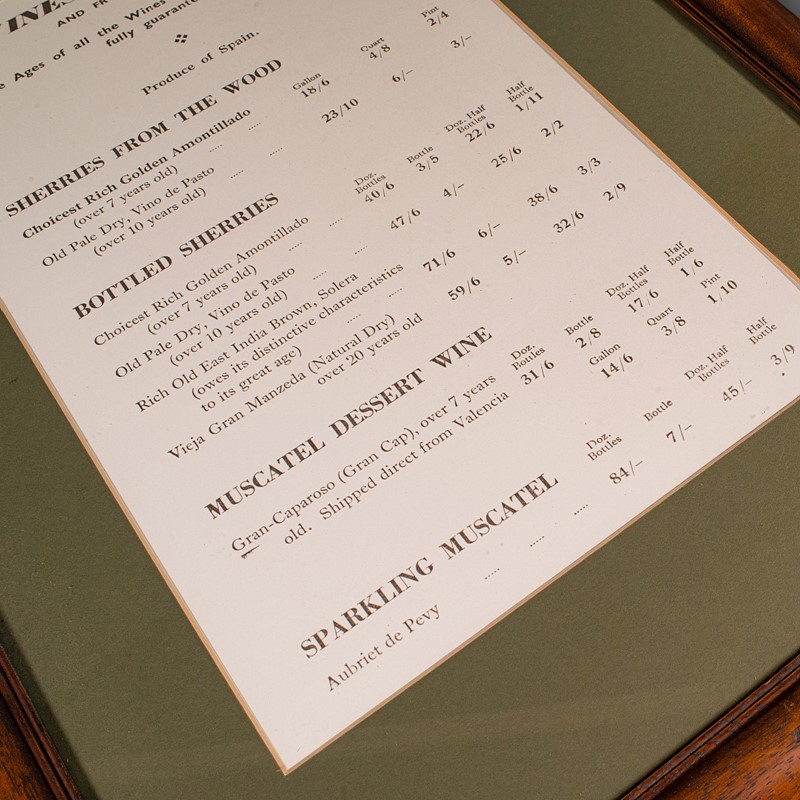 AND FR
Ages of all the Wines
fully guarante
Produce of Spain.
SHERRIES FROM THE WOOD
Gallon Quart Pint
Choicest Rich Golden Amontillado ..... 18/6 4/8 2/4
(over 7 years old)
Old Pale Dry, Vino de Pasto ..... ..... 23/10 6/– 3/–
(over 10 years old)
BOTTLED SHERRIES
Doz. Bottles Bottle Doz. Half Bottles Half Bottle
Choicest Rich Golden Amontillado ..... 40/6 3/5 22/6 1/11
(over 7 years old)
Old Pale Dry, Vino de Pasto ..... ..... 47/6 4/– 25/6 2/2
(over 10 years old)
Rich Old East India Brown, Solera ..... .....
(owes its distinctive characteristics 71/6 6/– 38/6 3/3
to its great age) ..... .....
Vieja Gran Manzeda (Natural Dry) 59/6 5/– 32/6 2/9
over 20 years old
MUSCATEL DESSERT WINE
Doz. Bottles Bottle Doz. Half Bottles Half Bottle
Gran-Caparoso (Gran Cap), over 7 years 31/6 2/8 17/6 1/6
old. Shipped direct from Valencia
Gallon Quart Pint
14/6 3/8 1/10
SPARKLING MUSCATEL
Doz. Bottles Bottle Doz. Half Bottles Half Bottle
Aubriet de Pevy ..... ..... ..... 84/– 7/– 45/– 3/9